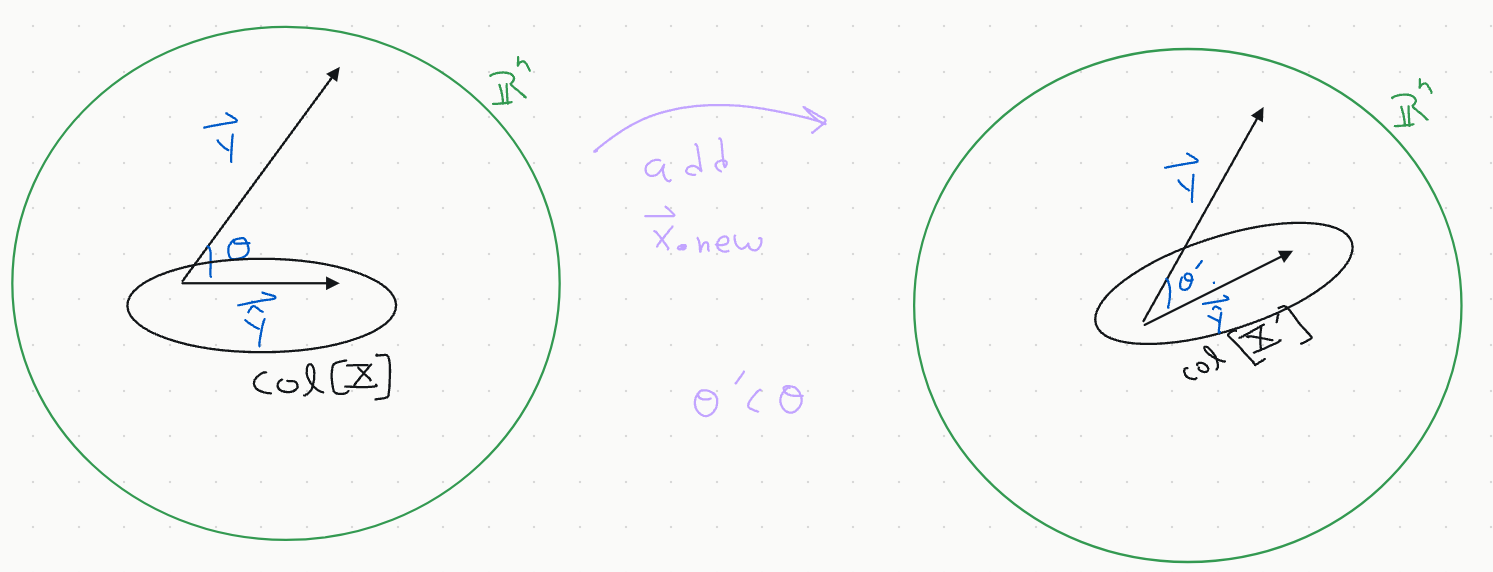 ℝⁿ
y⃗
θ
ŷ⃗
col[X]
add
x⃗•new
θ′<θ
ℝⁿ
y⃗
θ′
ŷ⃗
col[X′]